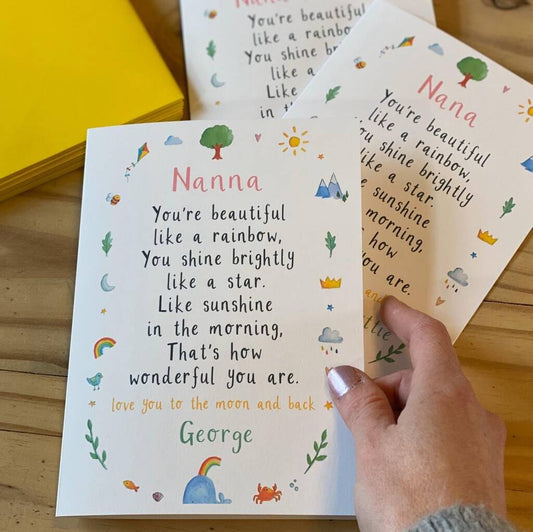 Nanna
You're beautiful
like a rainbow,
You shine brightly
like a star.
Like sunshine
in the morning,
That's how
wonderful you are.
love you to the moon and back
George
Nana
You're beautiful
like a rainbow,
You shine brightly
like a star.
sunshine
morning,
how
you are.
and
ttie
You're beautiful
like a rainbo
You shine br
like a
Like
in the